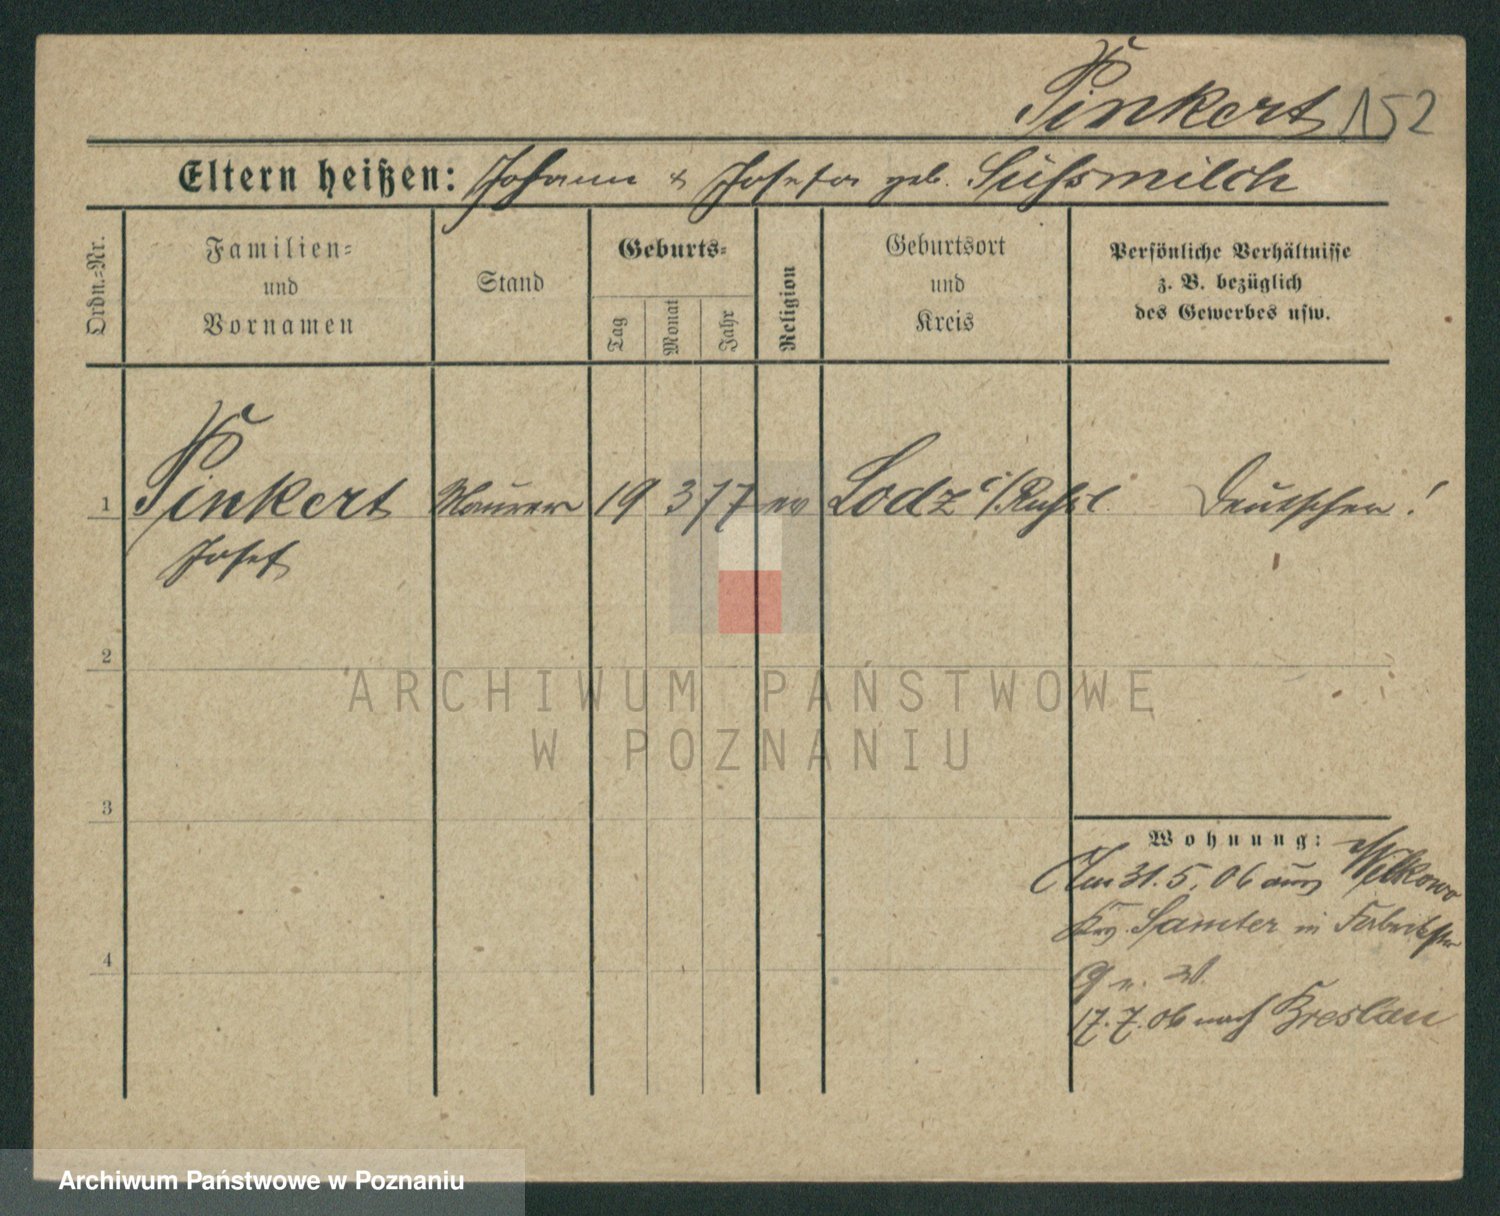 Pinkert 152
Eltern heißen: Johann & Josefa geb. Süßmilch
Ordn.=Nr.
Familien=
und
Vornamen
Stand
Geburts=
Tag
Monat
Jahr
Religion
Geburtsort
und
Kreis
Persönliche Verhältnisse
z. B. bezüglich
des Gewerbes usw.
1 Pinkert Maurer 19 3 77 ev Lodz i/Rußl. Deutscher!
Josef
2
ARCHIWUM PAŃSTWOWE
W POZNANIU
3
Wohnung:
Am 31.5.06 aus Wilkowo
Samter in
4
17.7.06 nach Breslau
Archiwum Państwowe w Poznaniu